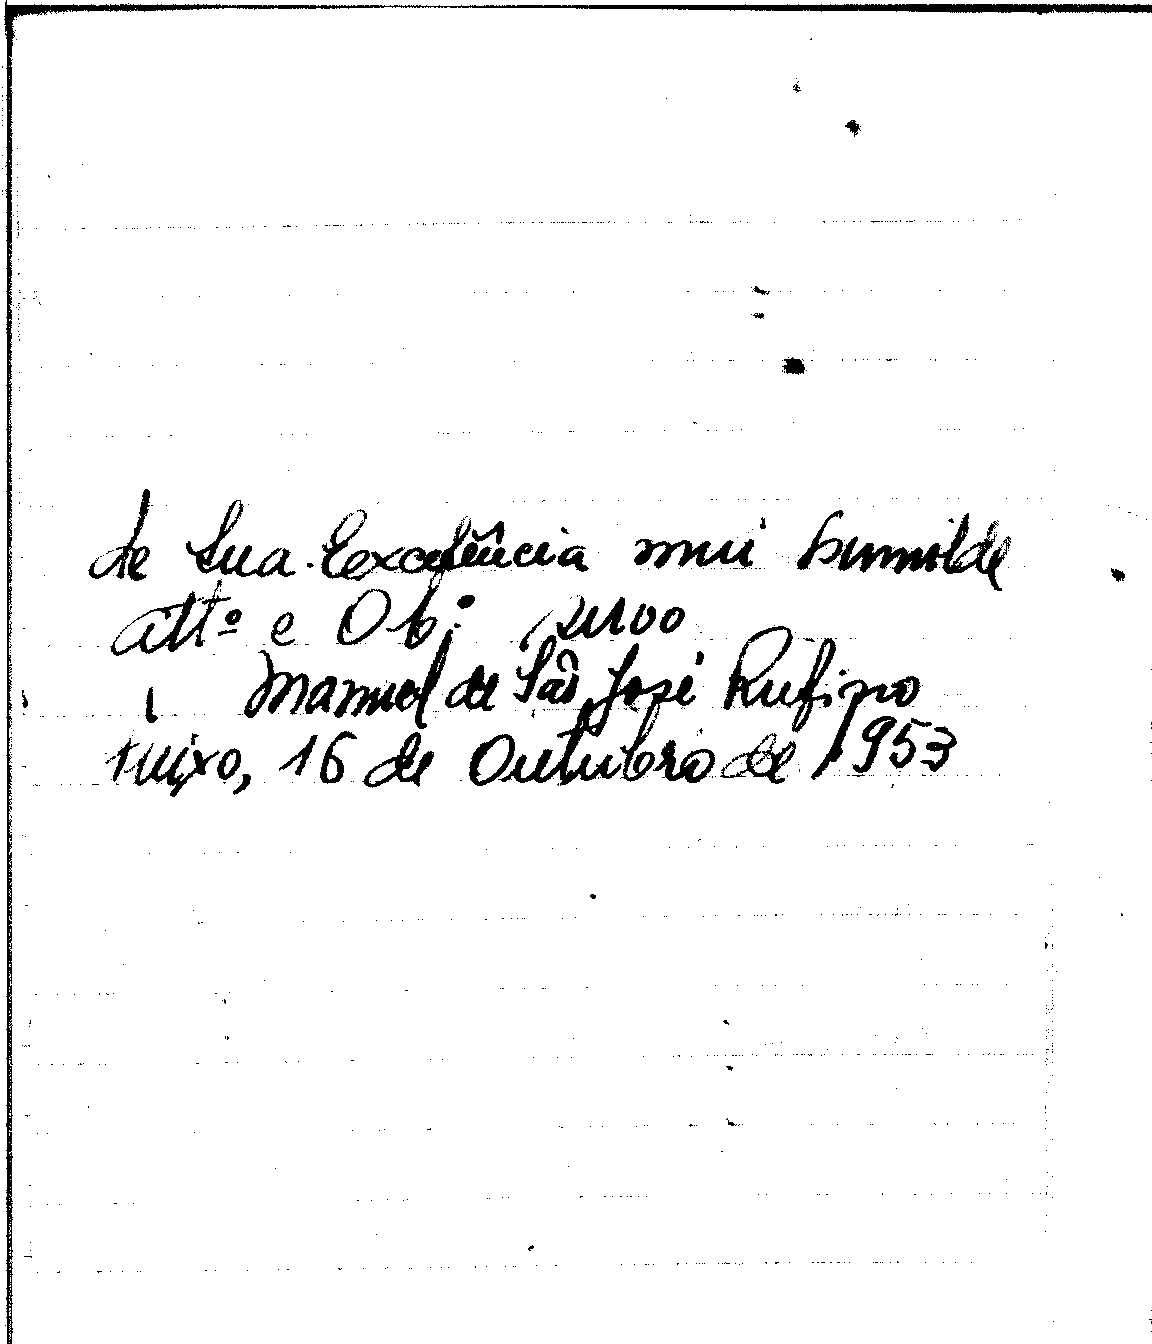 de Sua Excelência mui humilde
attº e Ob.º servo
Manuel de São José Rufino
16 de Outubro de 1953